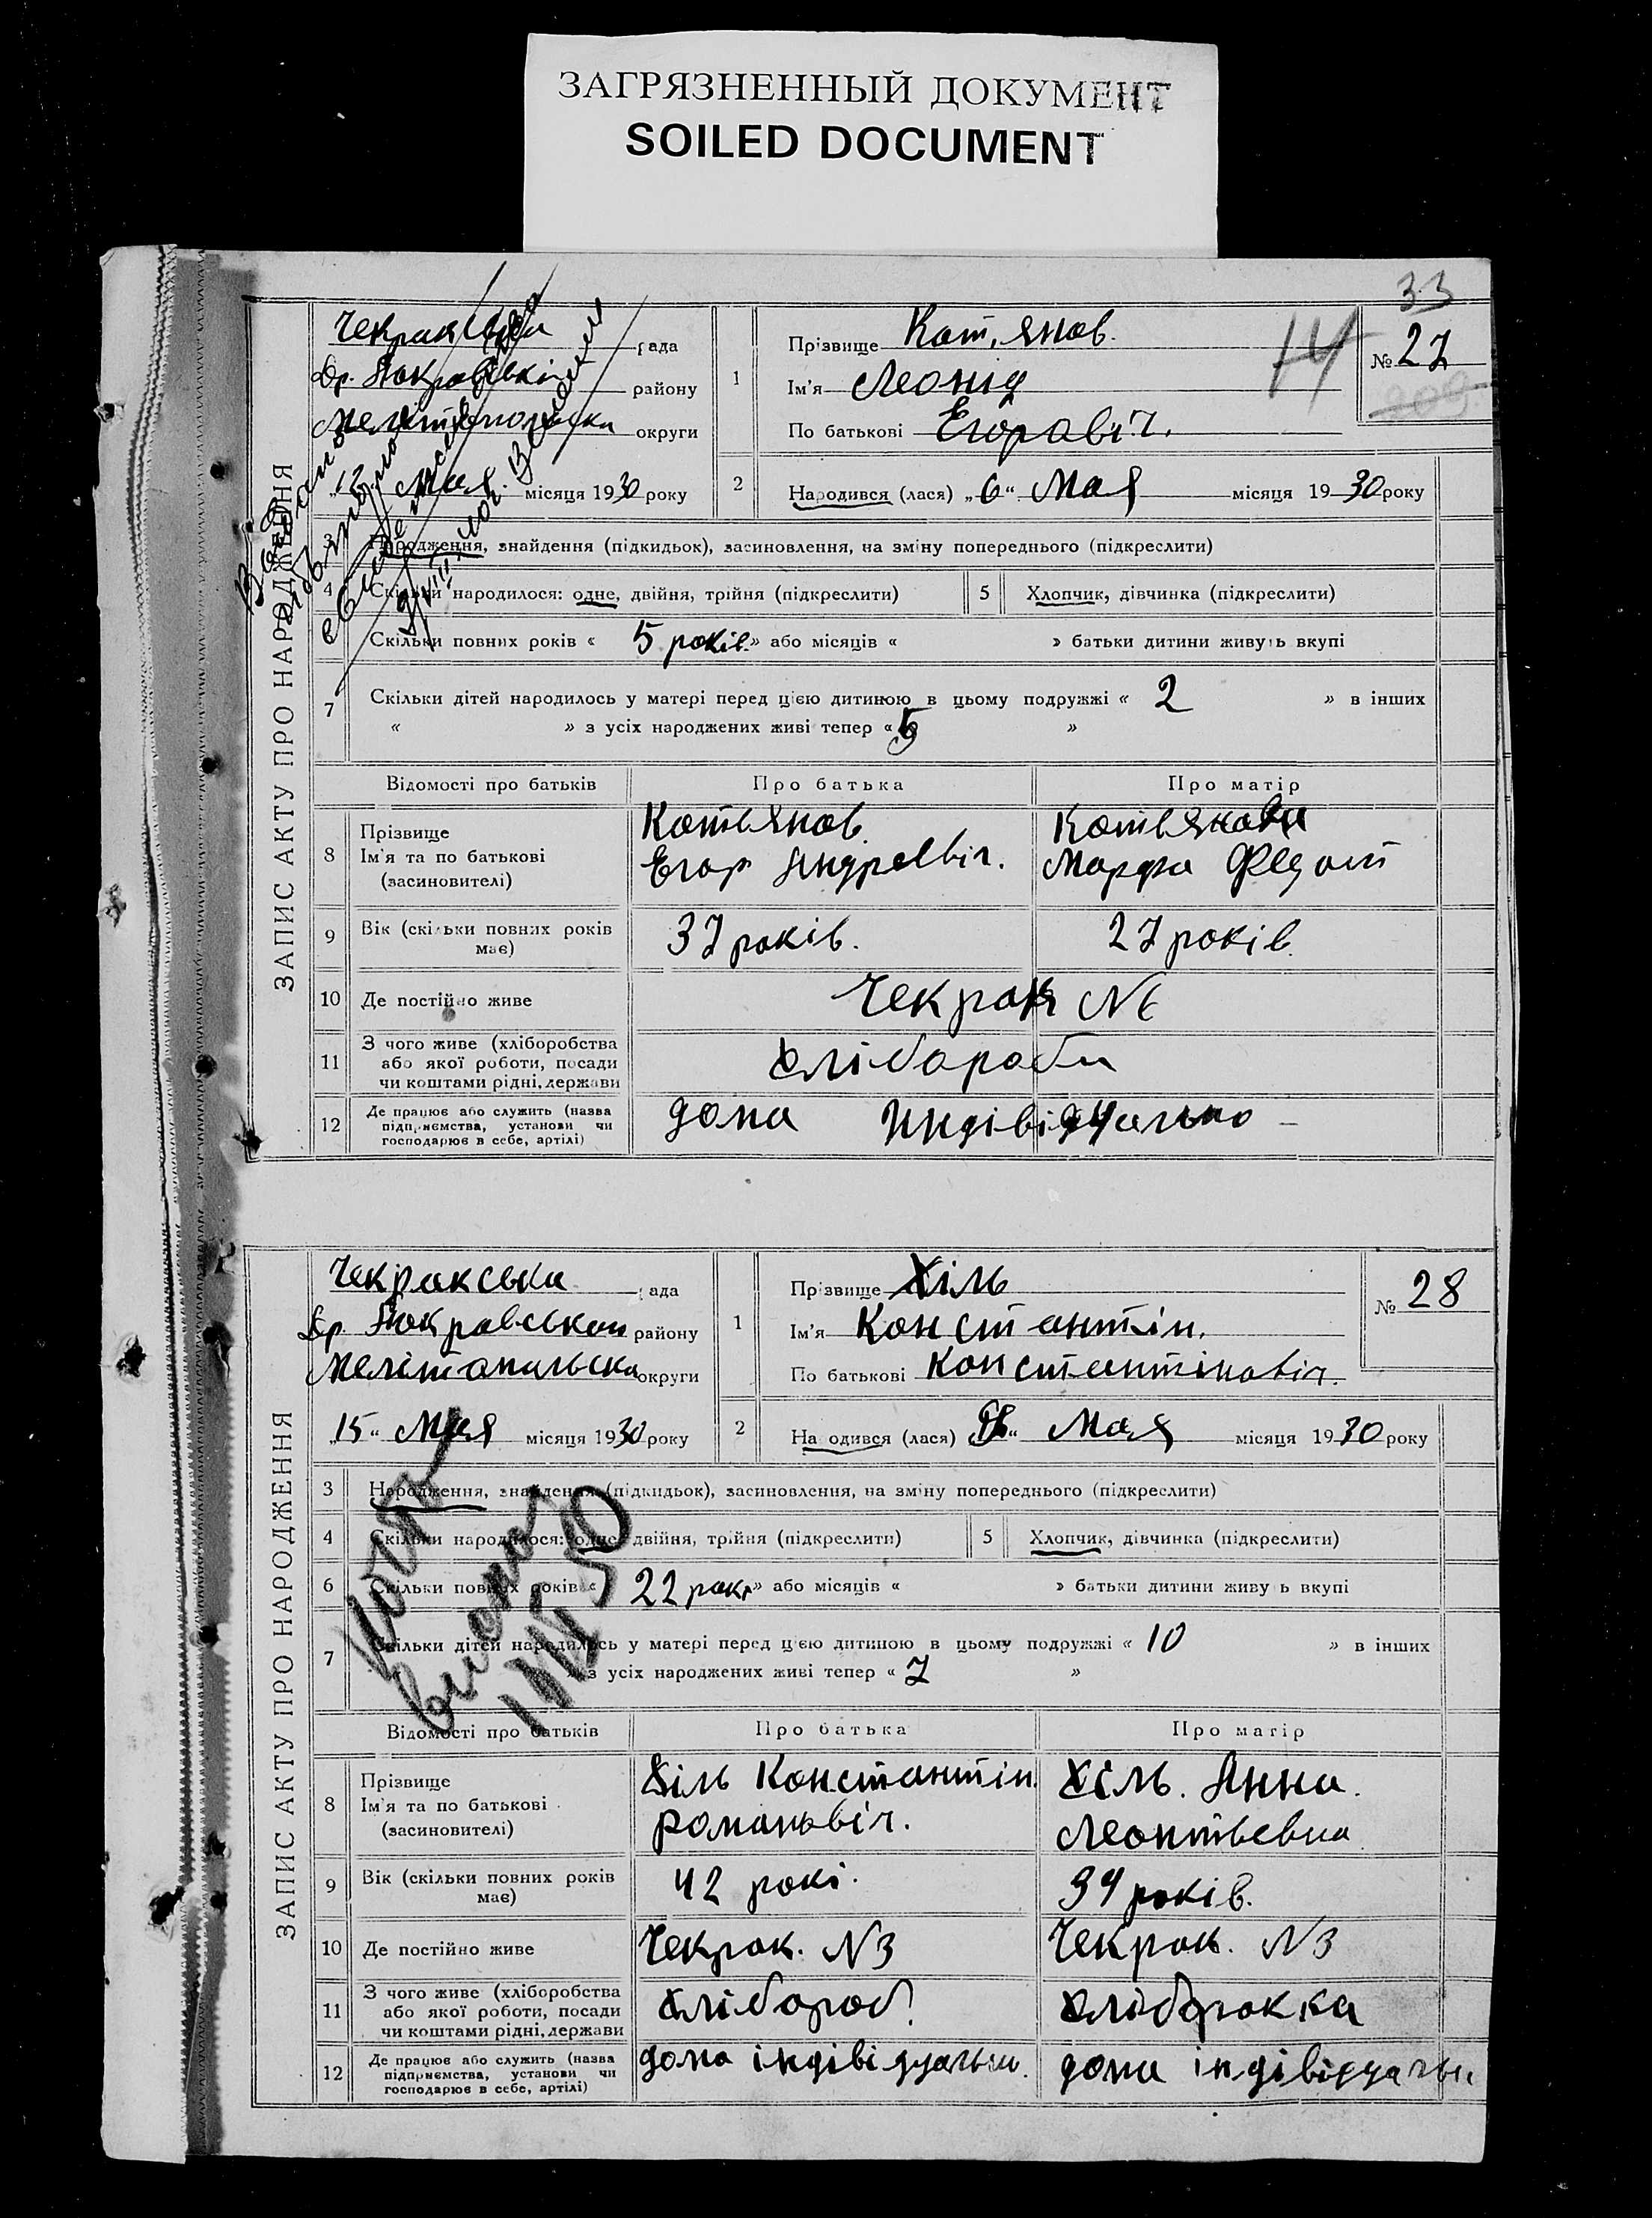 ЗАГРЯЗНЕННЫЙ ДОКУМЕНТ
SOILED DOCUMENT
33
ЗАПИС АКТУ ПРО НАРОДЖЕННЯ
рада
району
Мелітопольска округи
Мая місяця 1930 року
1
Прізвище Кот,янов.
Ім'я Леонід
По батькові Егоравіч.
14
№ 27
209
2
Народився (лася) „6“ Мая місяця 1930 року
3 Народження, знайдення (підкидьок), засиновлення, на зміну попереднього (підкреслити)
4 Скільки народилося: одне, двійня, трійня (підкреслити)
5 Хлопчик, дівчинка (підкреслити)
Скільки повних років « 5 років » або місяців « » батьки дитини живуть вкупі
7 Скільки дітей народилось у матері перед цією дитиною в цьому подружжі « 2 » в інших
« » з усіх народжених живі тепер « »
Відомості про батьків Про батька Про матір
8 Прізвище
Ім'я та по батькові
(засиновителі)
Котьянов
Егор Андреевіч.
Котьянова
Марфа Федот
9 Вік (скільки повних років має)
37 років.
27 років.
10 Де постійно живе
Чекрак №
11 З чого живе (хліборобства
або якої роботи, посади
чи коштами рідні, держави
хлібороби
12 Де працює або служить (назва
підприємства, установи чи
господарює в себе, артілі)
дома индівідуально
ЗАПИС АКТУ ПРО НАРОДЖЕННЯ
Чекракська рада
Покравськои району
Мелітопольска округи
„15“ Мая місяця 1930 року
1
Прізвище Хіль
Ім'я Константін.
По батькові Константіновіч.
№ 28
2
Народився (лася) Мая місяця 1930 року
3 Народження, знайдення (підкидьок), засиновлення, на зміну попереднього (підкреслити)
4 Скільки народилося: одне, двійня, трійня (підкреслити)
5 Хлопчик, дівчинка (підкреслити)
6 Скільки повних років « 22 рокі » або місяців « » батьки дитини живуть вкупі
7 Скільки дітей народилось у матері перед цією дитиною в цьому подружжі « 10 » в інших
« » з усіх народжених живі тепер « 7 »
Відомості про батьків Про батька Про матір
8 Прізвище
Ім'я та по батькові
(засиновителі)
Хіль Константін
Романьвіч.
Хіль. Анна.
Леонтьевна
9 Вік (скільки повних років має)
42 рокі.
34 років.
10 Де постійно живе
Чекрак. N3
Чекрак. N3
11 З чого живе (хліборобства
або якої роботи, посади
чи коштами рідні, держави
хлібороб
хліборокка
12 Де працює або служить (назва
підприємства, установи чи
господарює в себе, артілі)
дома індівідуально.
дома індівідуальн